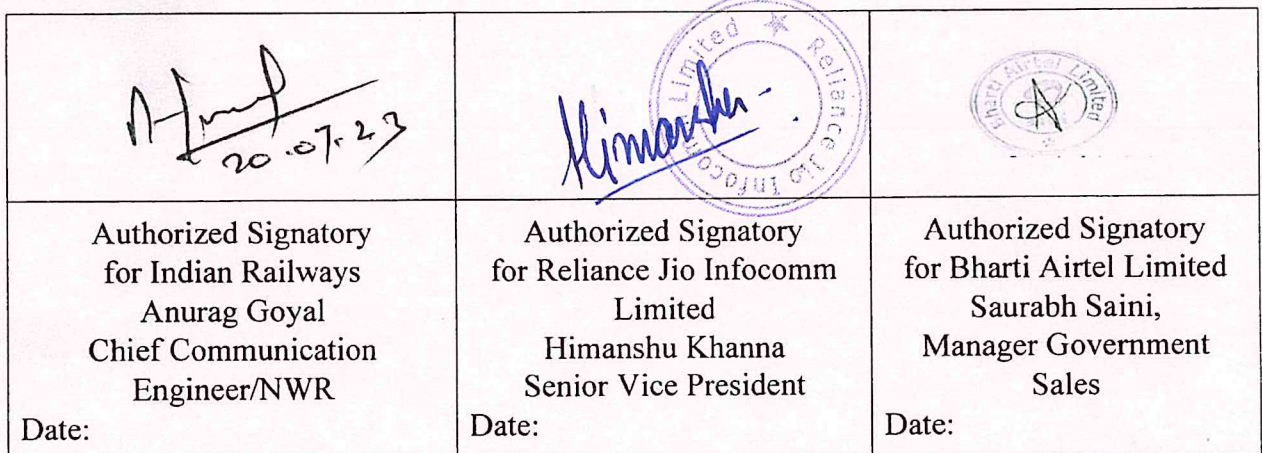 20.07.23
Himanshu
Reliance Jio Infocomm Limited
Bharti Airtel Limited
Authorized Signatory
for Indian Railways
Anurag Goyal
Chief Communication
Engineer/NWR
Date:
Authorized Signatory
for Reliance Jio Infocomm
Limited
Himanshu Khanna
Senior Vice President
Date:
Authorized Signatory
for Bharti Airtel Limited
Saurabh Saini,
Manager Government
Sales
Date: